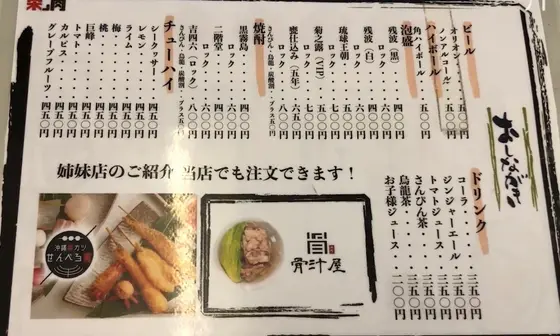 おしながき
ビール
オリオン
ノンアルコール
ハイボール
角ハイボール
泡盛
残波（黒）
ロック
残波（白）
ロック
琉球王朝
ロック
菊之露（VIP）
ロック
甕仕込み（五年）
ロック
さんぴん・烏龍・炭酸割・プラス五〇円
焼酎
黒霧島
ロック
二階堂
ロック
吉四六（ロック）
さんぴん・烏龍・炭酸割・プラス五〇円
チューハイ
シークヮサー 四五〇円
レモン 四五〇円
ライム 四五〇円
梅 四五〇円
桃 四五〇円
巨峰 四五〇円
トマト 四五〇円
カルピス 四五〇円
グレープフルーツ 四五〇円
ドリンク
コーラ 三五〇円
ジンジャーエール 三五〇円
トマトジュース 三五〇円
さんぴん茶 三五〇円
烏龍茶 三五〇円
お子様ジュース 二〇〇円
姉妹店のご紹介 当店でも注文できます！
沖縄串カツ
せんべろ
骨汁屋